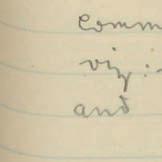 comm
viz:-
and